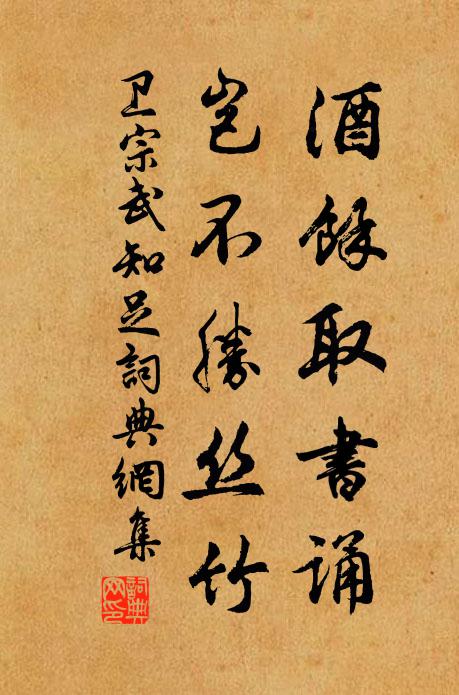 酒餘取書誦
岂不勝丝竹
卫宗武知足詞典網集
詞典網印